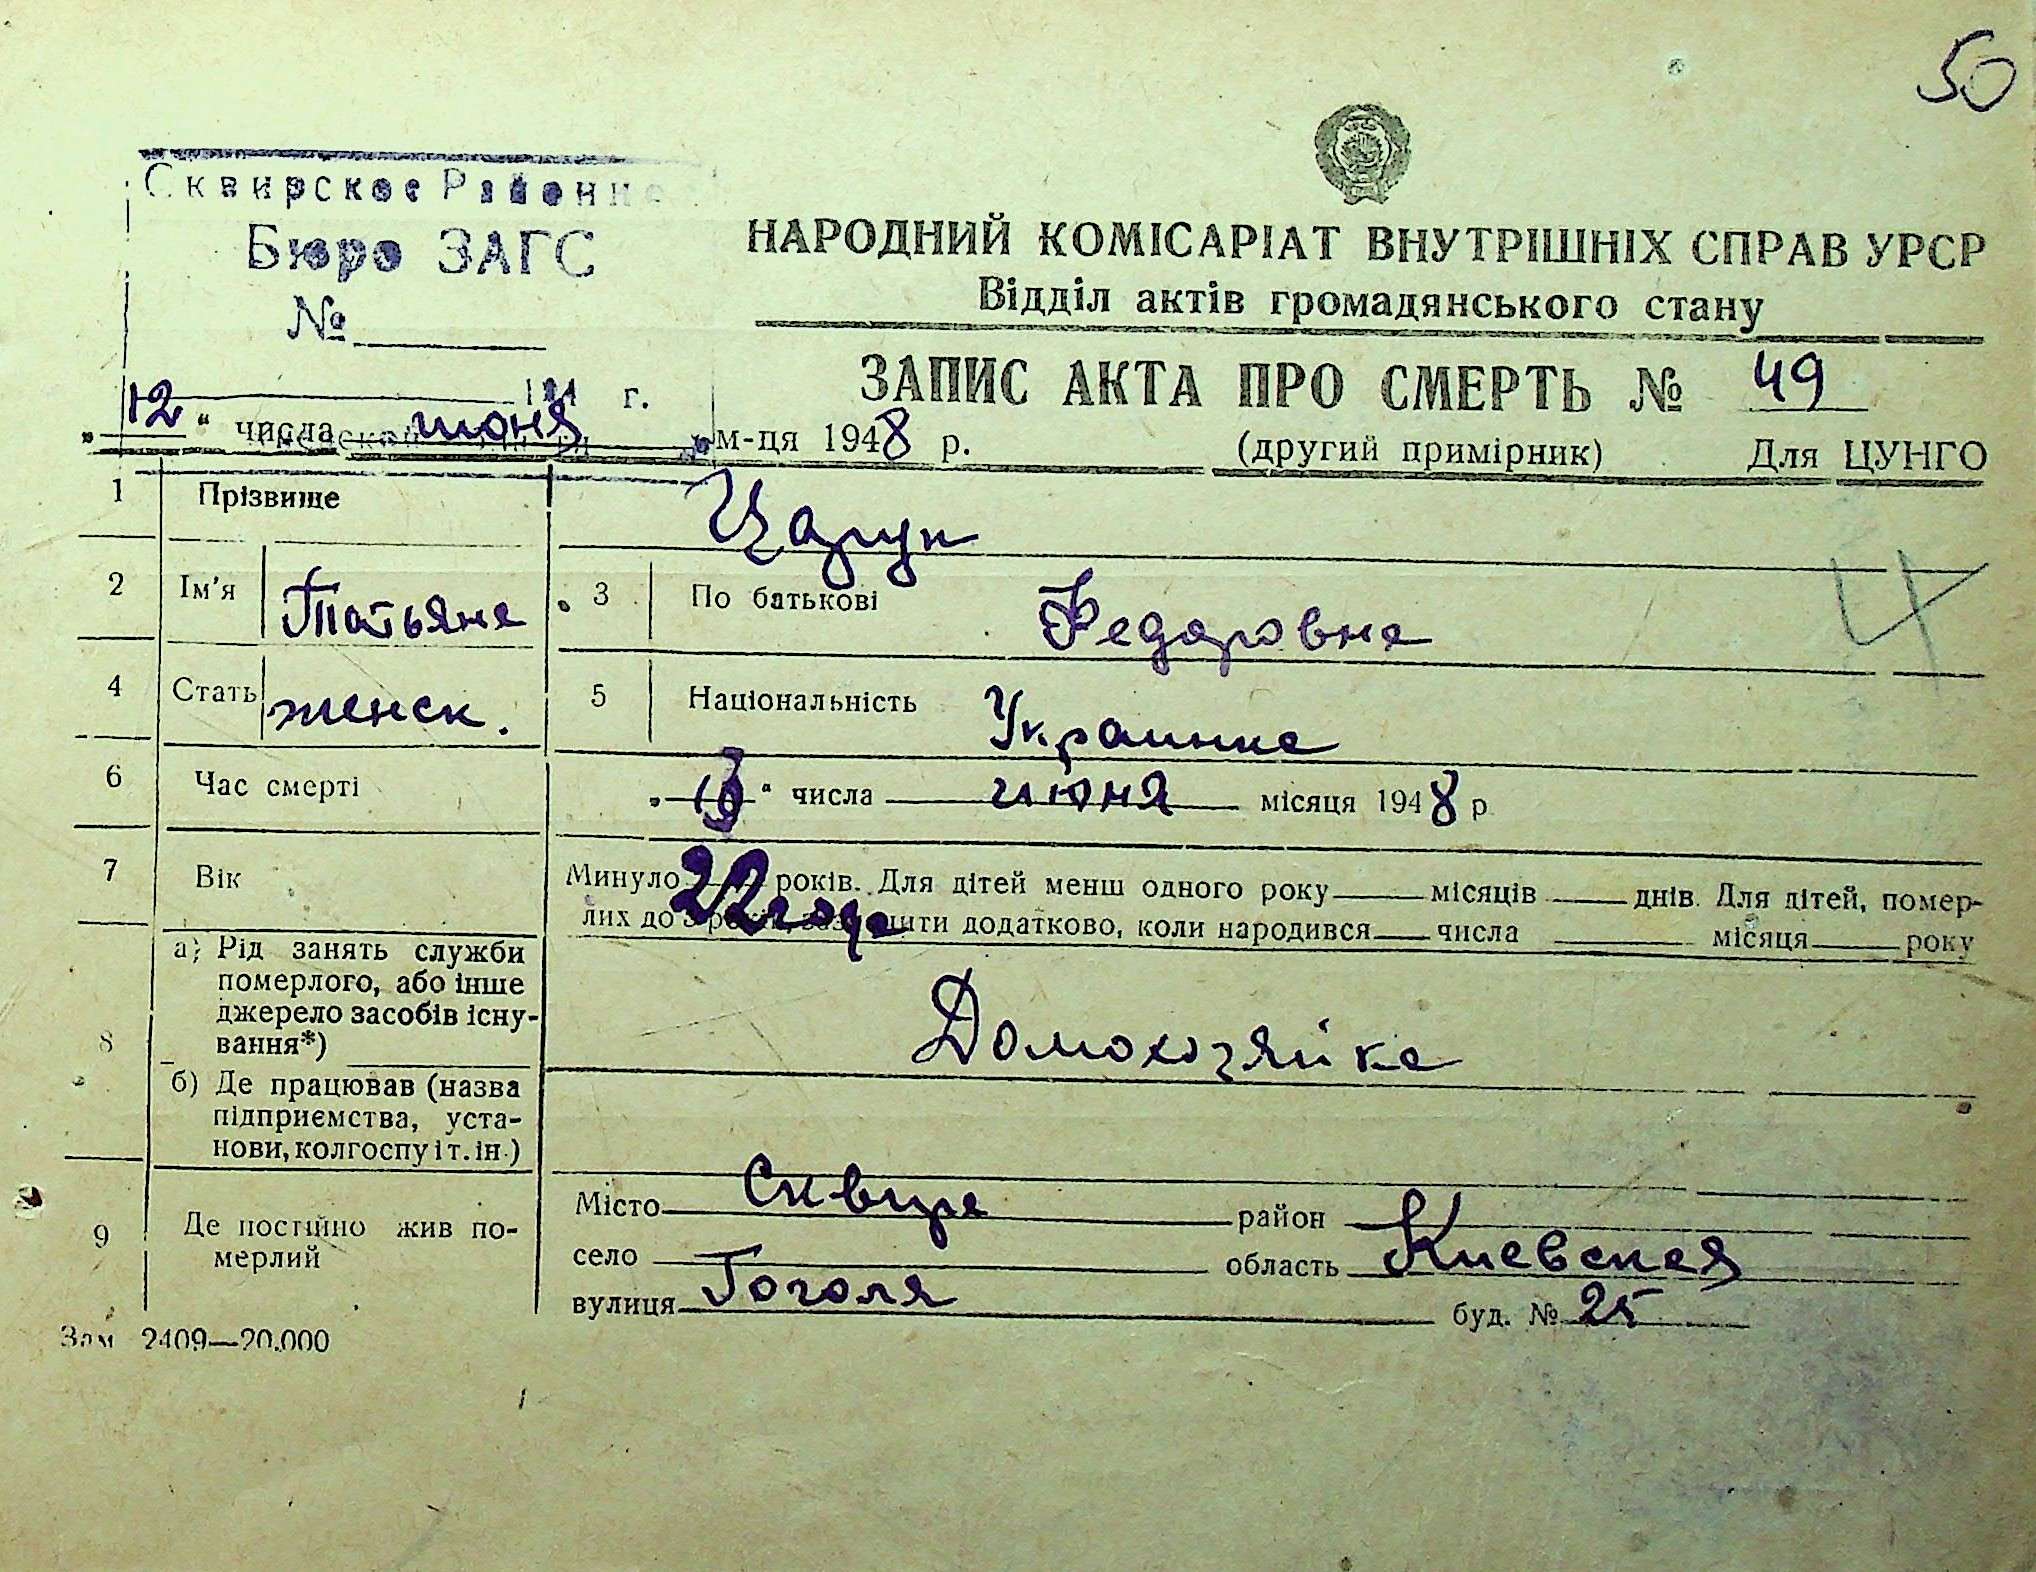 50
Сквирское Районно
Бюро ЗАГС
№
194 г.
НАРОДНИЙ КОМІСАРІАТ ВНУТРІШНІХ СПРАВ УРСР
Відділ актів громадянського стану
ЗАПИС АКТА ПРО СМЕРТЬ № 49
„12“ числа июня м-ця 1948 р. (другий примірник) Для ЦУНГО
1 Прізвище Царук
2 Ім'я Татьяна 3 По батькові Федоровна
4 Стать женск. 5 Національність Украинка
6 Час смерті числа июня місяця 1948 р
7 Вік Минуло 22 года років. Для дітей менш одного року місяців днів. Для дітей, помер-
лих до 3 років, зазначити додатково, коли народився числа місяця року
8 а) Рід занять служби
померлого, або інше
джерело засобів існу-
вання*) Домохозяйка
б) Де працював (назва
підприємства, уста-
нови, колгоспу і т. ін.)
9 Де постійно жив по-
мерлий
Місто Сквира район
село область Киевская
вулиця Гоголя буд. № 25
Зам 2409—20.000